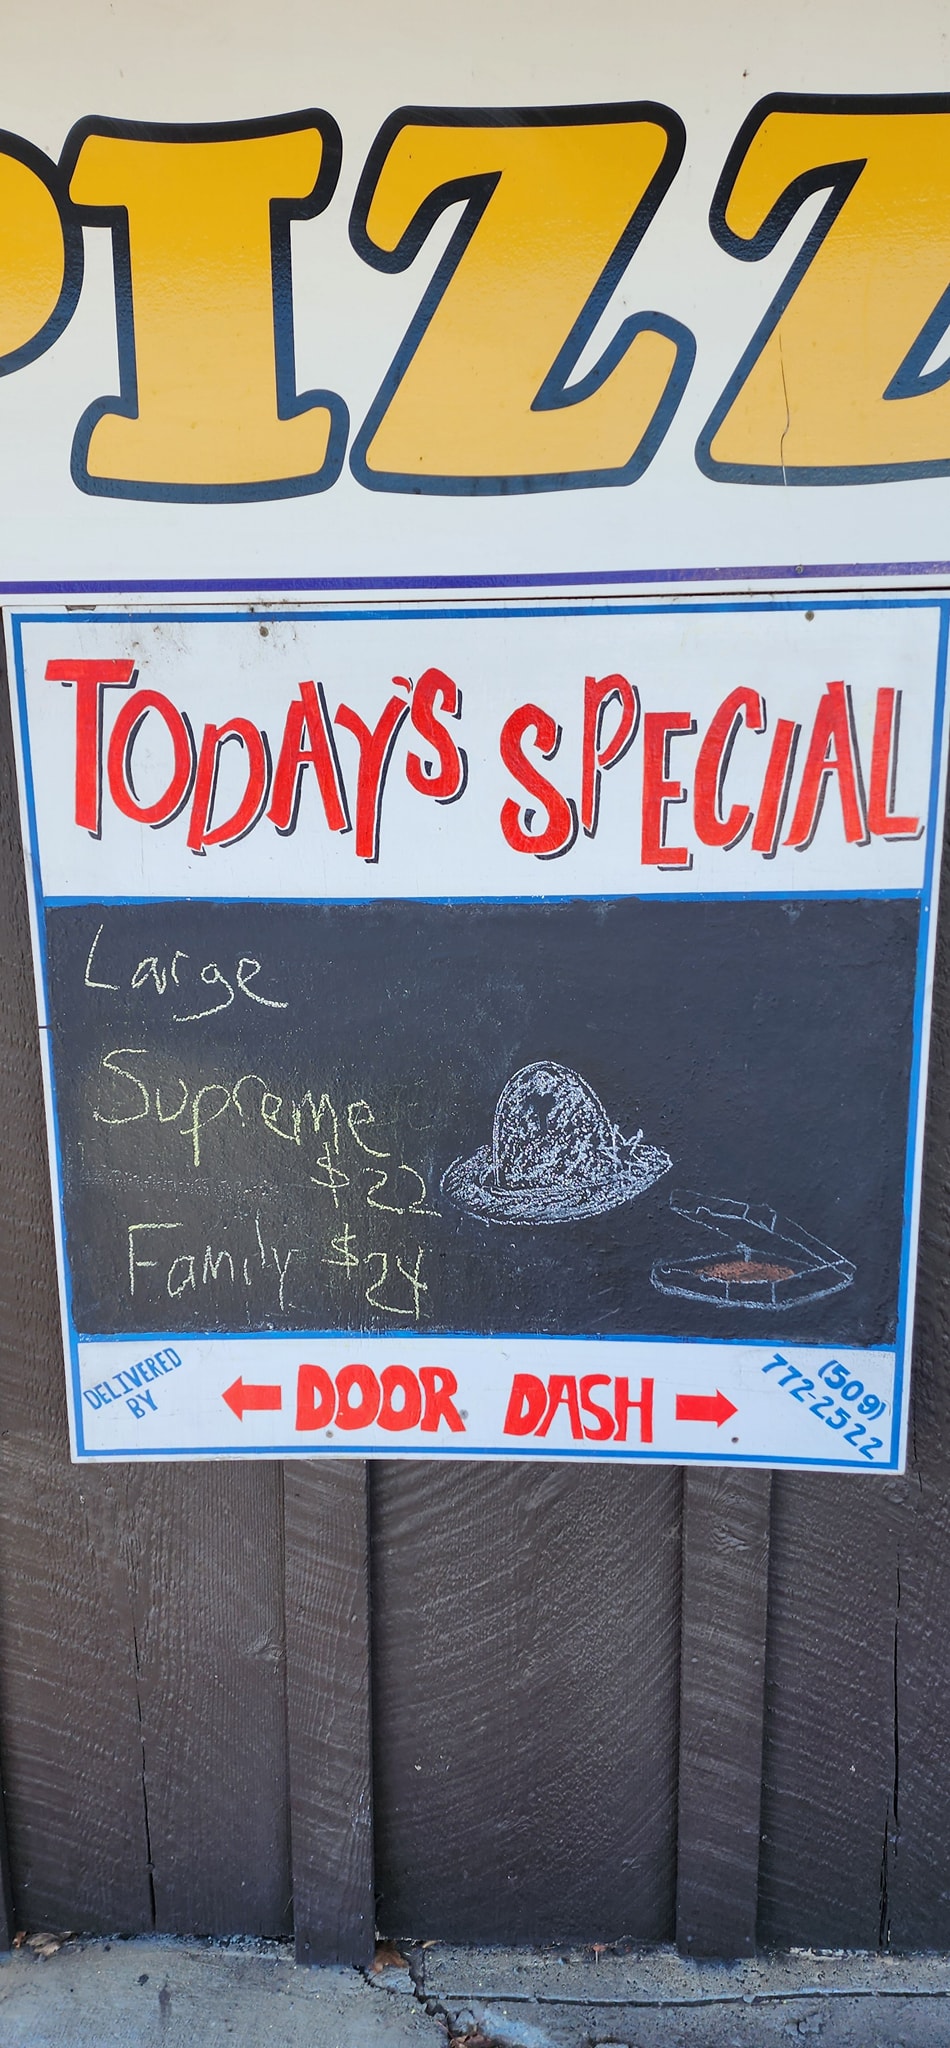 PIZZ
TODAY'S SPECIAL
Large
Supreme
$22
Family $24
DELIVERED
BY
DOOR DASH
(509)
772-2522